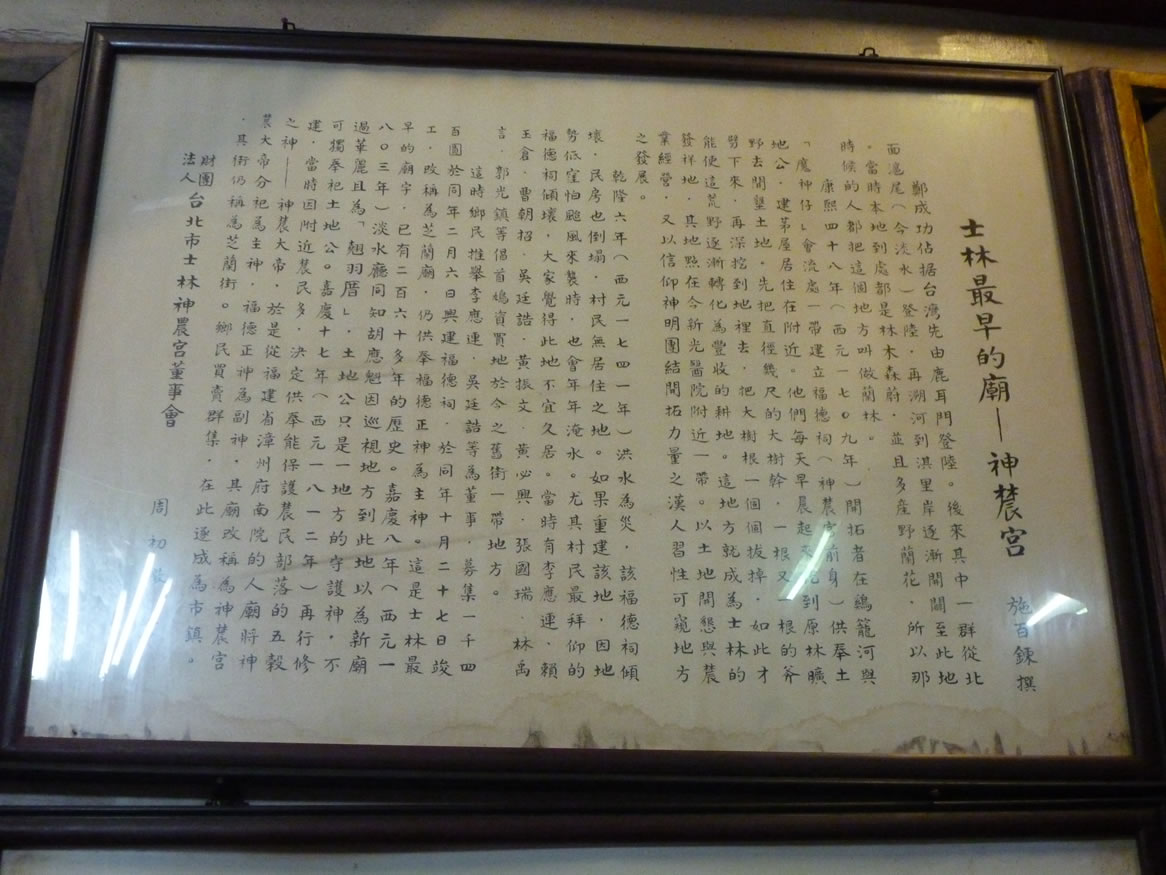 士林最早的廟──神農宮
施百鍊撰
鄭成功佔据台灣先由鹿耳門登陸。後來其中一群從北
面滬尾(今淡水)登陸.再溯河到淇里岸逐漸開闢至此地
。當時本地到處都是林木森蔚.並且多產野蘭花.所以那
時候的人都把這個地方叫做蘭林。
康熙四十八年(西元一七〇九年)開拓者在鷄籠河與
「魔神仔」會流處一帶建立福德祠(神農宮前身)供奉土
地公.建茅屋居住在附近。他們每天早晨起來 到原林曠
野去開墾土地.先把直徑幾尺的大樹幹.一根又一根的斧
劈下來.再深挖到地裡去.把大樹根一個個拔掉.如此才
能使這荒野逐漸轉化為豐收的耕地。這地方就成為士林的
發祥地.其地點在今新光醫院附近一帶。以土地開懇與農
業經營.又以信仰神明團結開拓力量之漢人習性可窺地方
之發展。
乾隆六年(西元一七四一年)洪水為災.該福德祠傾
壞.民房也倒塌.村民無居住之地。如果重建該地.因地
勢低窪怕颱風來襲時.也會年年淹水。尤其村民最拜仰的
福德祠傾壞.大家覺得此地不宜久居。當時有李應連.賴
玉倉.曹朝招.吳廷誥.黃振文.黃必興.張國瑞.林禹
言.郭光鎮等倡首鳩資買地於今之舊街一帶地方。
這時鄉民推舉李應連.吳廷誥等為董事.募集一千四
百圓於同年二月六日興建福德祠.於同年十月二十七日竣
工.改稱為芝蘭廟.仍供奉福德正神為主神。這是士林最
早的廟宇.已有二百六十多年的歷史。嘉慶八年(西元一
八〇三年)淡水廳同知胡應魁因巡視地方到此地以為新廟
過華麗且為「翹羽厝」.土地公只是一地方的守護神.不
可獨奉祀土地公。嘉慶十七年(西元一八一二年)再行修
建.當時因附近農民多.決定供奉能保護農民部落的五穀
之神──神農大帝.於是從福建省漳州府南院的人廟將神
農大帝分祀為主神.福德正神為副神.其廟改稱為神農宮
.其街仍稱為芝蘭街。鄉民買賣群集.在此逐成為市鎮。
財團法人台北市士林神農宮董事會
周初